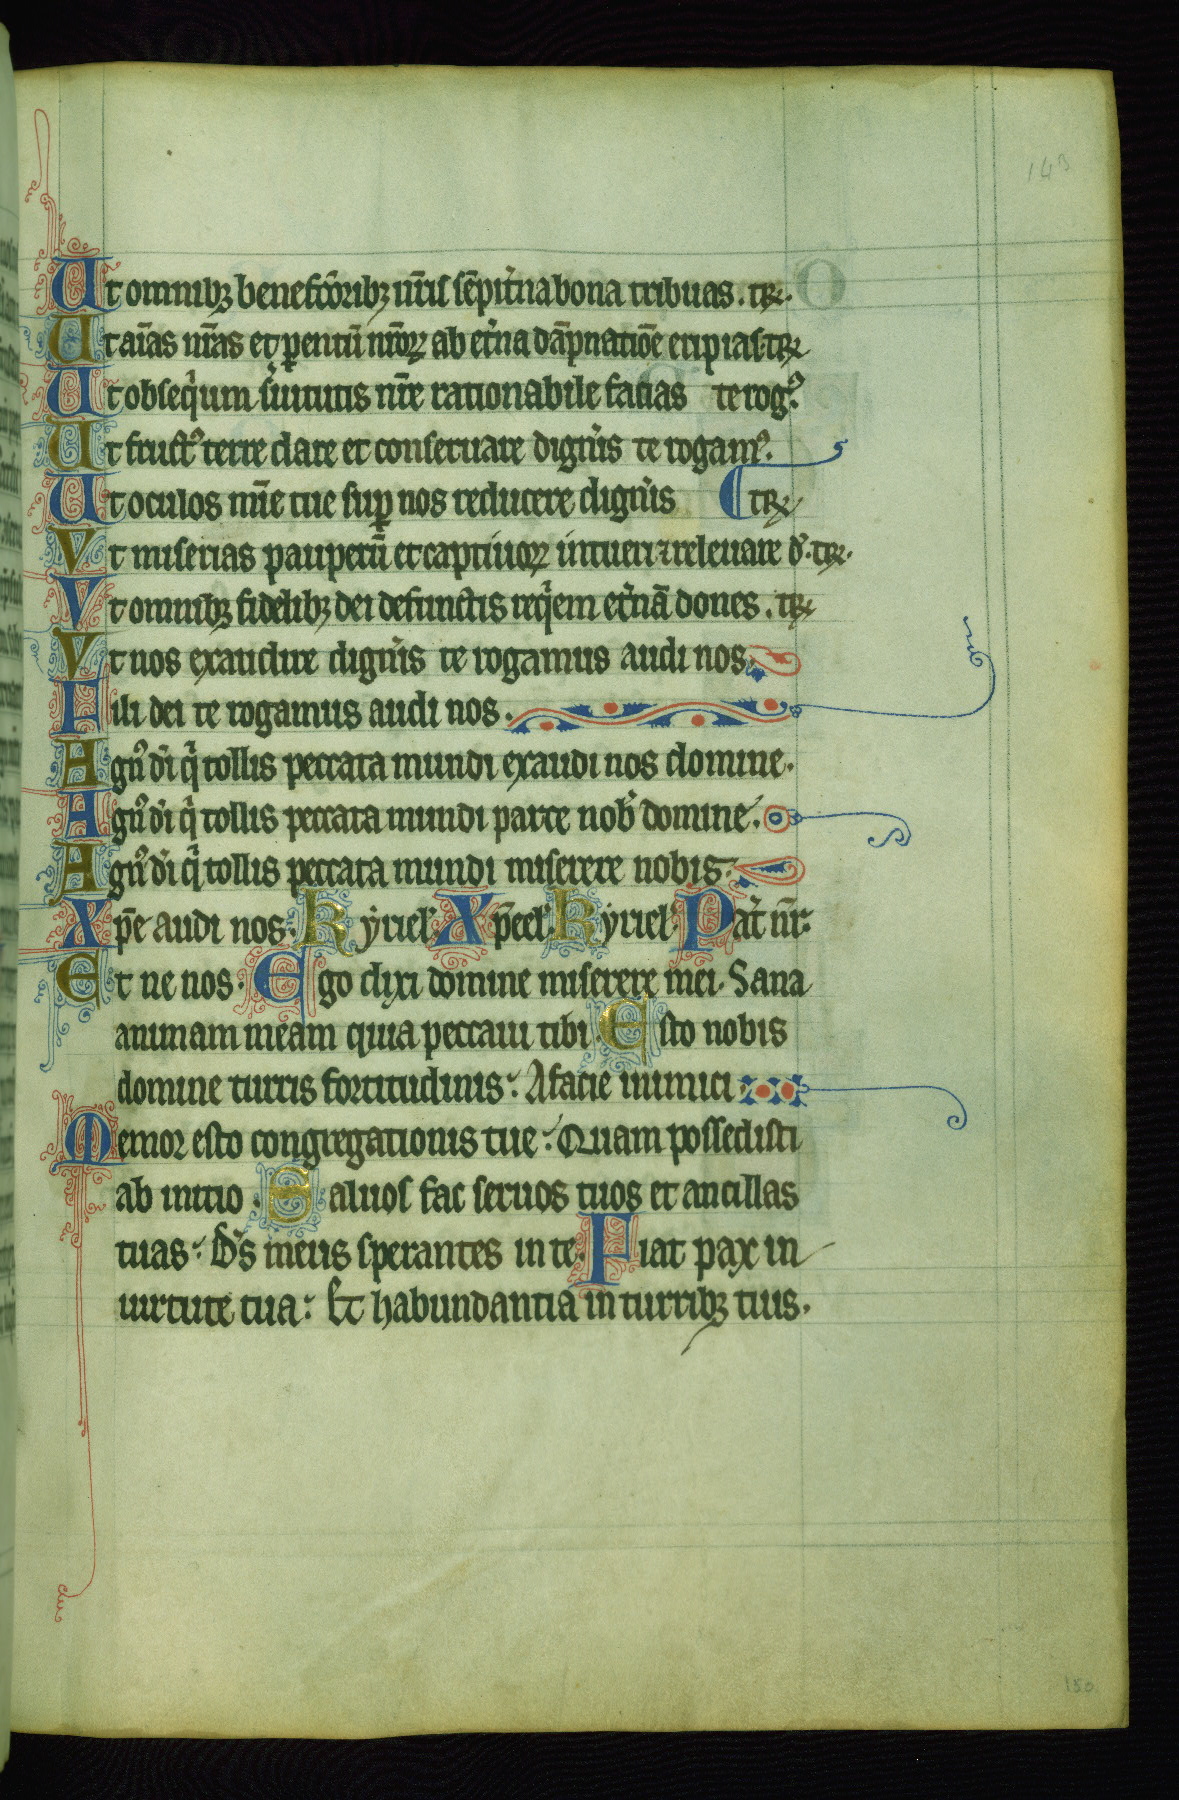 143
Ut omnibꝫ benefc̄oribꝫ nr̄is sēpit̾na bona tribuas. tr̄.
Ut aīas nr̄as et ꝑentū nr̄oꝝ ab et̾na dāpnatiōe eripias tr̄
Ut obseq̾um s̾uitutis nr̄e rationabile facias te rog᷒.
Ut fruct᷒ terre dare et conseruare dign̾is te rogam᷒.
Ut oculos mīe tue suꝑ nos reducere dign̾is tr̄
Vt miserias pauperū et captiuoꝝ intueri ⁊ releuare d̾. tr̄.
Vt omnibꝫ fidelibꝫ dei defunctis req̾em et̾nā dones. tr̄
Vt nos exaudire dign̾is te rogamus audi nos.
Fili dei te rogamus audi nos.
Agn᷒ di̅ q̾ tollis peccata mundi exaudi nos domine.
Agn᷒ di̅ q̾ tollis peccata mundi parce nob̾ domine.
Agn᷒ di̅ q̾ tollis peccata mundi miserere nobis.
Xp̄e audi nos. Kyriel̾. Xp̄eel̾. Kyriel̾. Pat̾ nr̄.
Et ne nos. Ego dixi domine miserere mei. Sana
animam meam quia peccaui tibi. Esto nobis
domine turris fortitudinis: A facie inimici.
Memor esto congregationis tue: Quam possedisti
ab initio. Saluos fac seruos tuos et ancillas
tuas: Ds̄ meus sperantes in te. Fiat pax in
uirtute tua: Et habundantia in turribꝫ tuis.
150